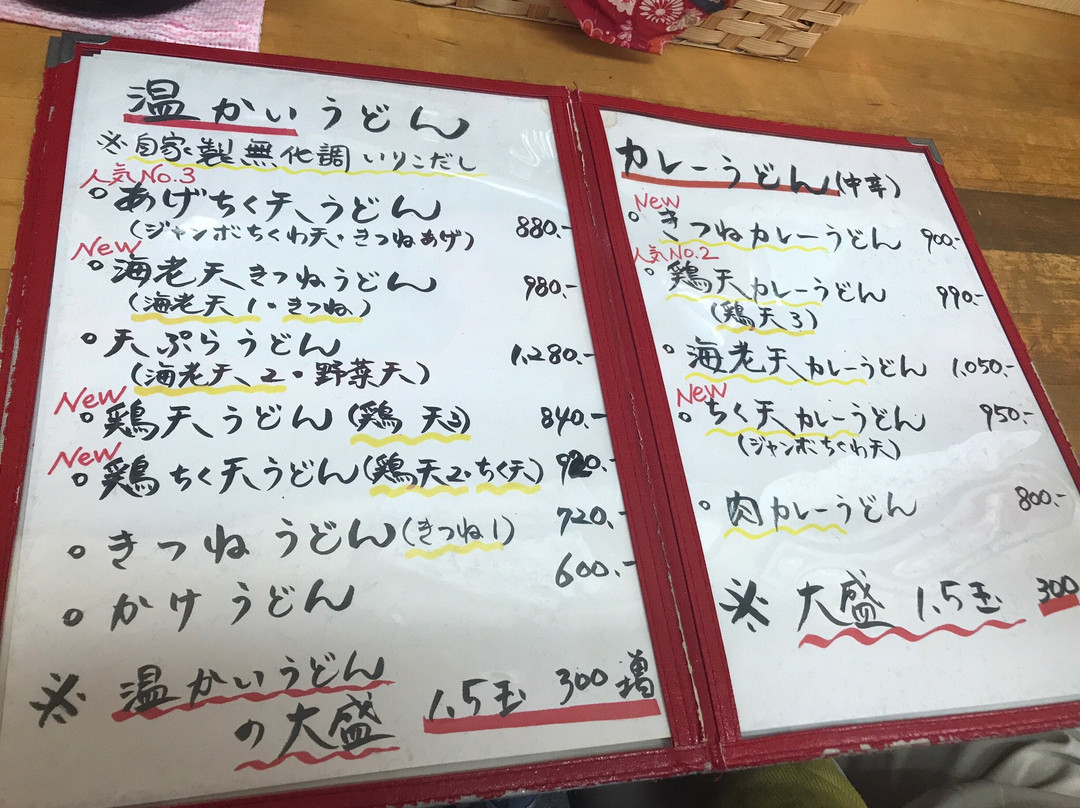 温かいうどん
※自家製無化調いりこだし
人気No.3
○あげちく天うどん 880.-
(ジャンボちくわ天・きつねあげ)
New
○海老天きつねうどん 980.-
(海老天1・きつね)
○天ぷらうどん 1,280.-
(海老天2・野菜天)
New
○鶏天うどん(鶏天3) 840.-
New
○鶏ちく天うどん(鶏天2・ちく天) 920.-
○きつねうどん(きつね1) 720.-
○かけうどん 600.-
※温かいうどん
の大盛 1.5玉 300増
カレーうどん(中辛)
New
○きつねカレーうどん 900.-
人気No.2
○鶏天カレーうどん 990.-
(鶏天3)
○海老天カレーうどん 1,050.-
New
○ちく天カレーうどん 950.-
(ジャンボちくわ天)
○肉カレーうどん 800.-
※大盛 1.5玉 300